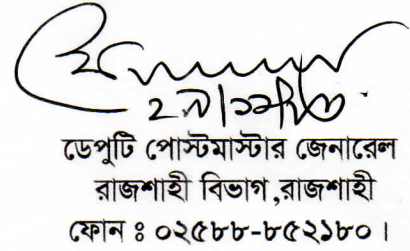 ডেপুটি পোস্টমাস্টার জেনারেল
রাজশাহী বিভাগ,রাজশাহী
ফোন ঃ ০২৫৮৮-৮৫২১৮০।